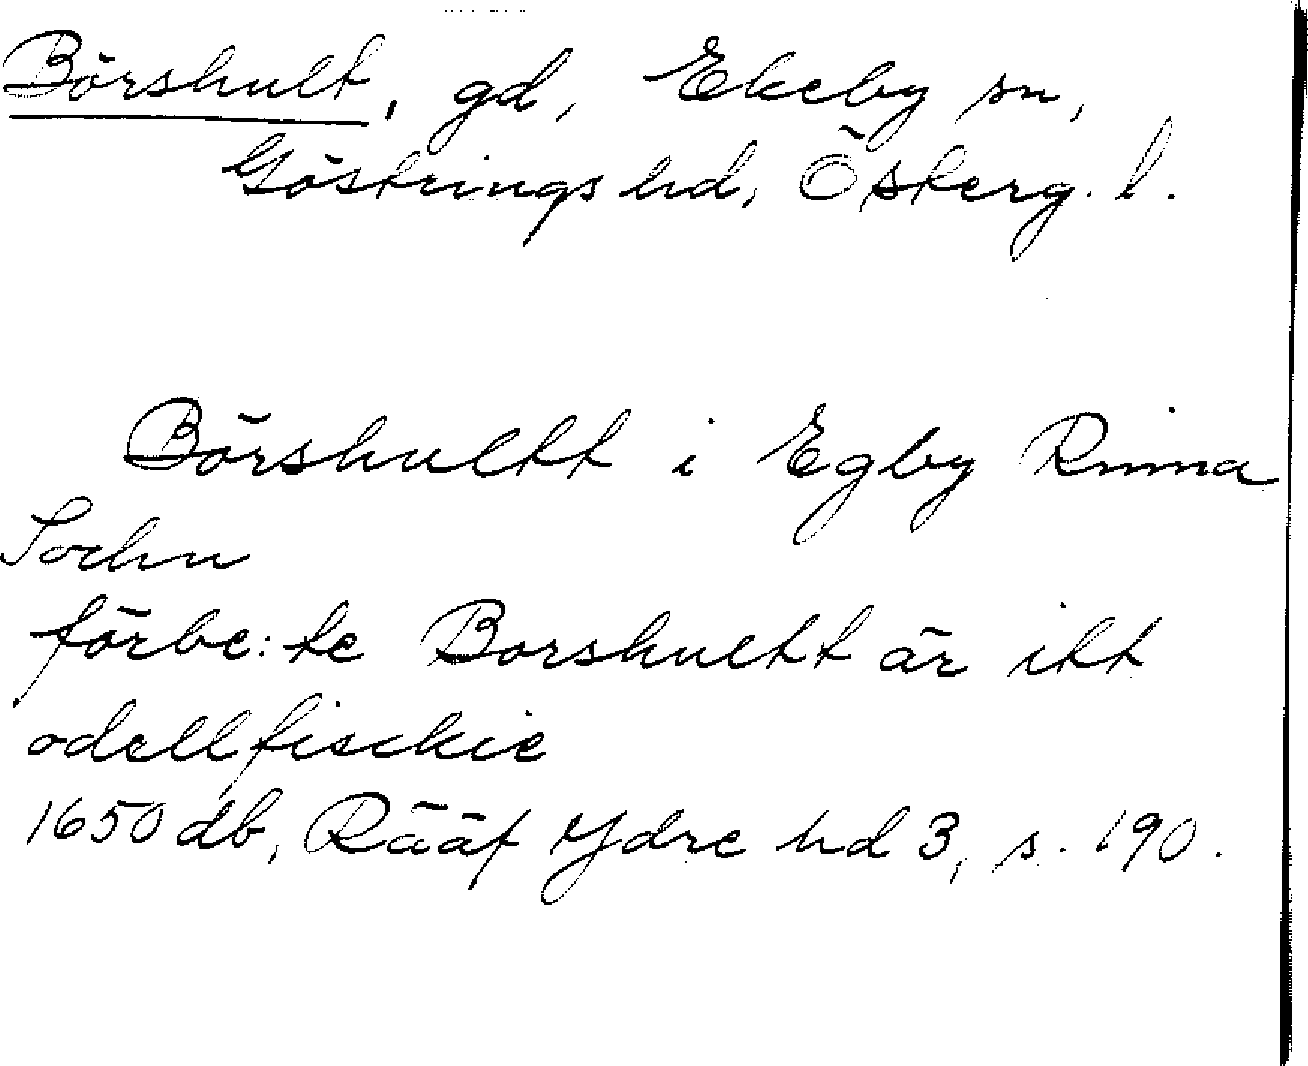 Börshult, gd, Ekeby sn,
Göstrings hd, Österg. l.
Börshultt i Egby Rinna
Sochn
förbe:te Borshultt är itt
odellfisckie
1650 db, Rääf Ydre hd 3, s. 190.